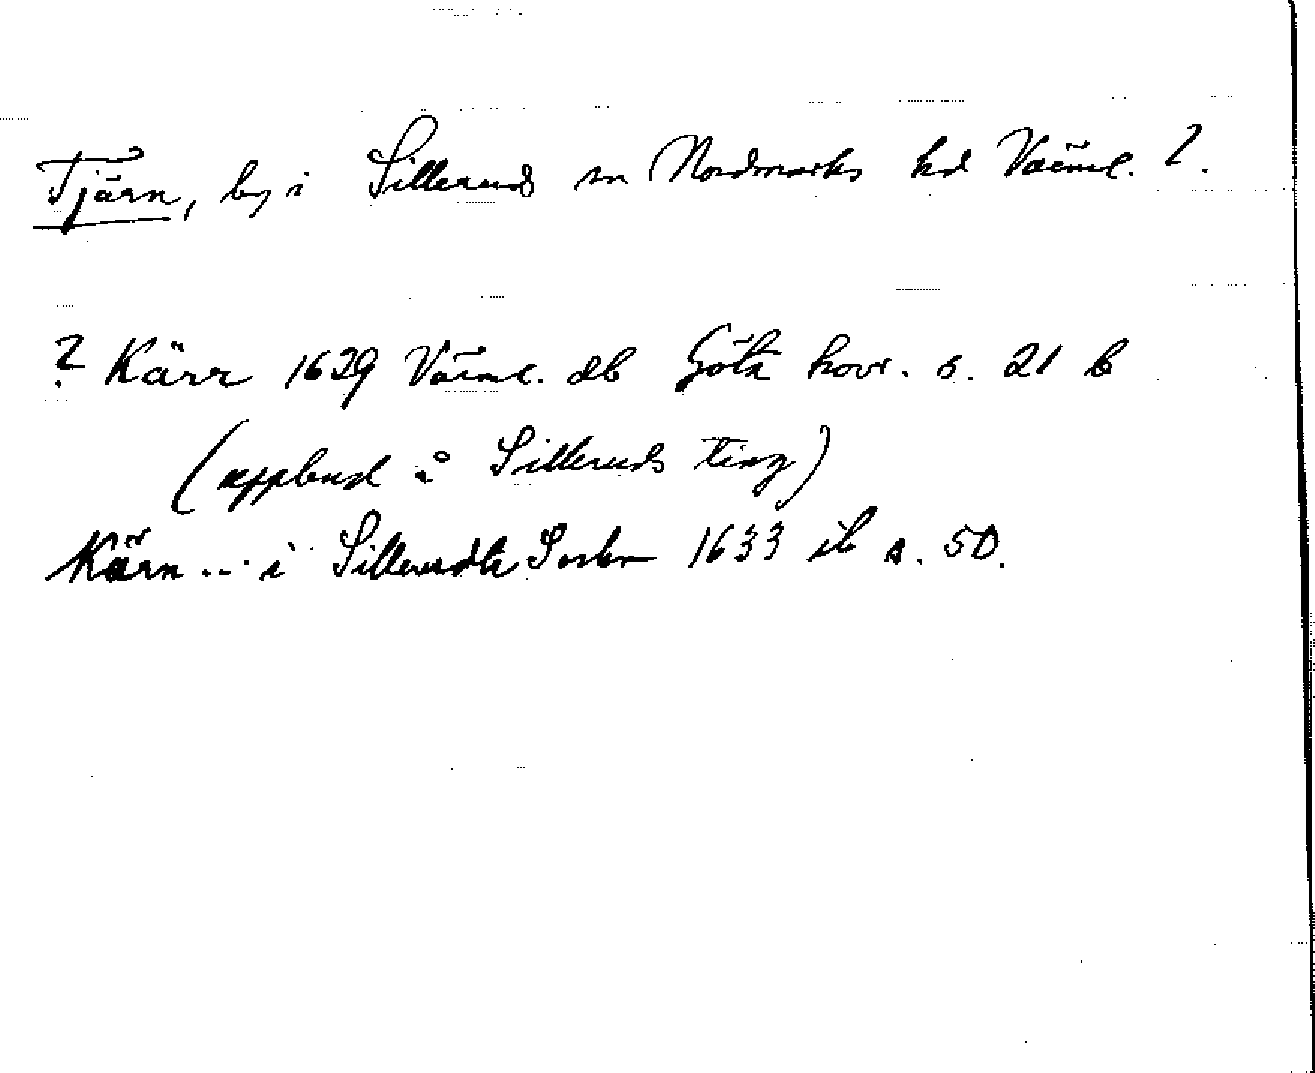 Tjärn, by i Sillerud sn Nordmarks hd Värml. ?.
? Kärr 1629 Värml. db Göta hovr. s. 21 b
(uppbud å Silleruds ting)
Kärn ... i Sillerudh Sochn 1633 ib s. 50.